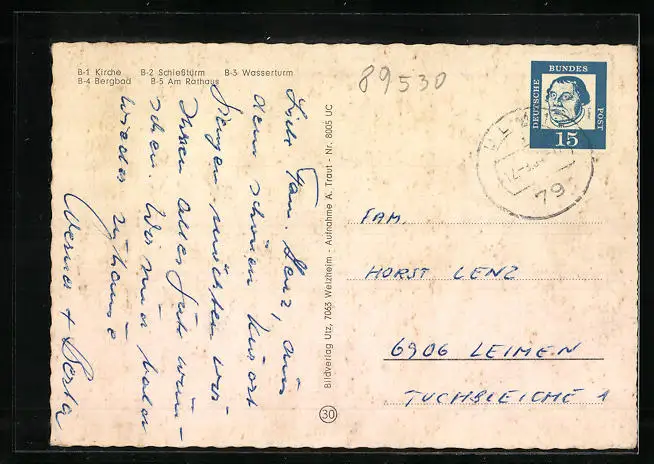 B-1 Kirche B-2 Schießturm B-3 Wasserturm
B-4 Bergbad B-5 Am Rathaus
89530
Liebe Fam. Lenz, aus
dem schönen Kurort
möchten wir
Ihnen alles Gute wün-
schen. Wir sind bald
wieder zuhause
Werner + Berta
Bildverlag Utz, 7063 Welzheim - Aufnahme A. Traut - Nr. 8005 UC
30
DEUTSCHE
BUNDES
POST
15
ULM
79
FAM.
HORST LENZ
6906 LEIMEN
TUCHBLEICHE 1